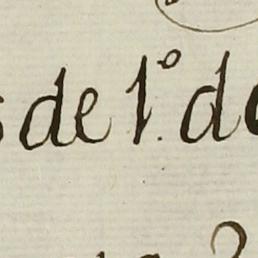 de 1.º de